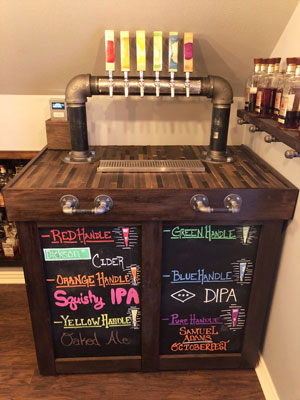 RED HANDLE
CIDER
ORANGE HANDLE
Squishy IPA
YELLOW HANDLE
Oaked Ale
GREEN HANDLE
BLUE HANDLE
DIPA
PURPLE HANDLE
SAMUEL
ADAMS
OCTOBERFEST